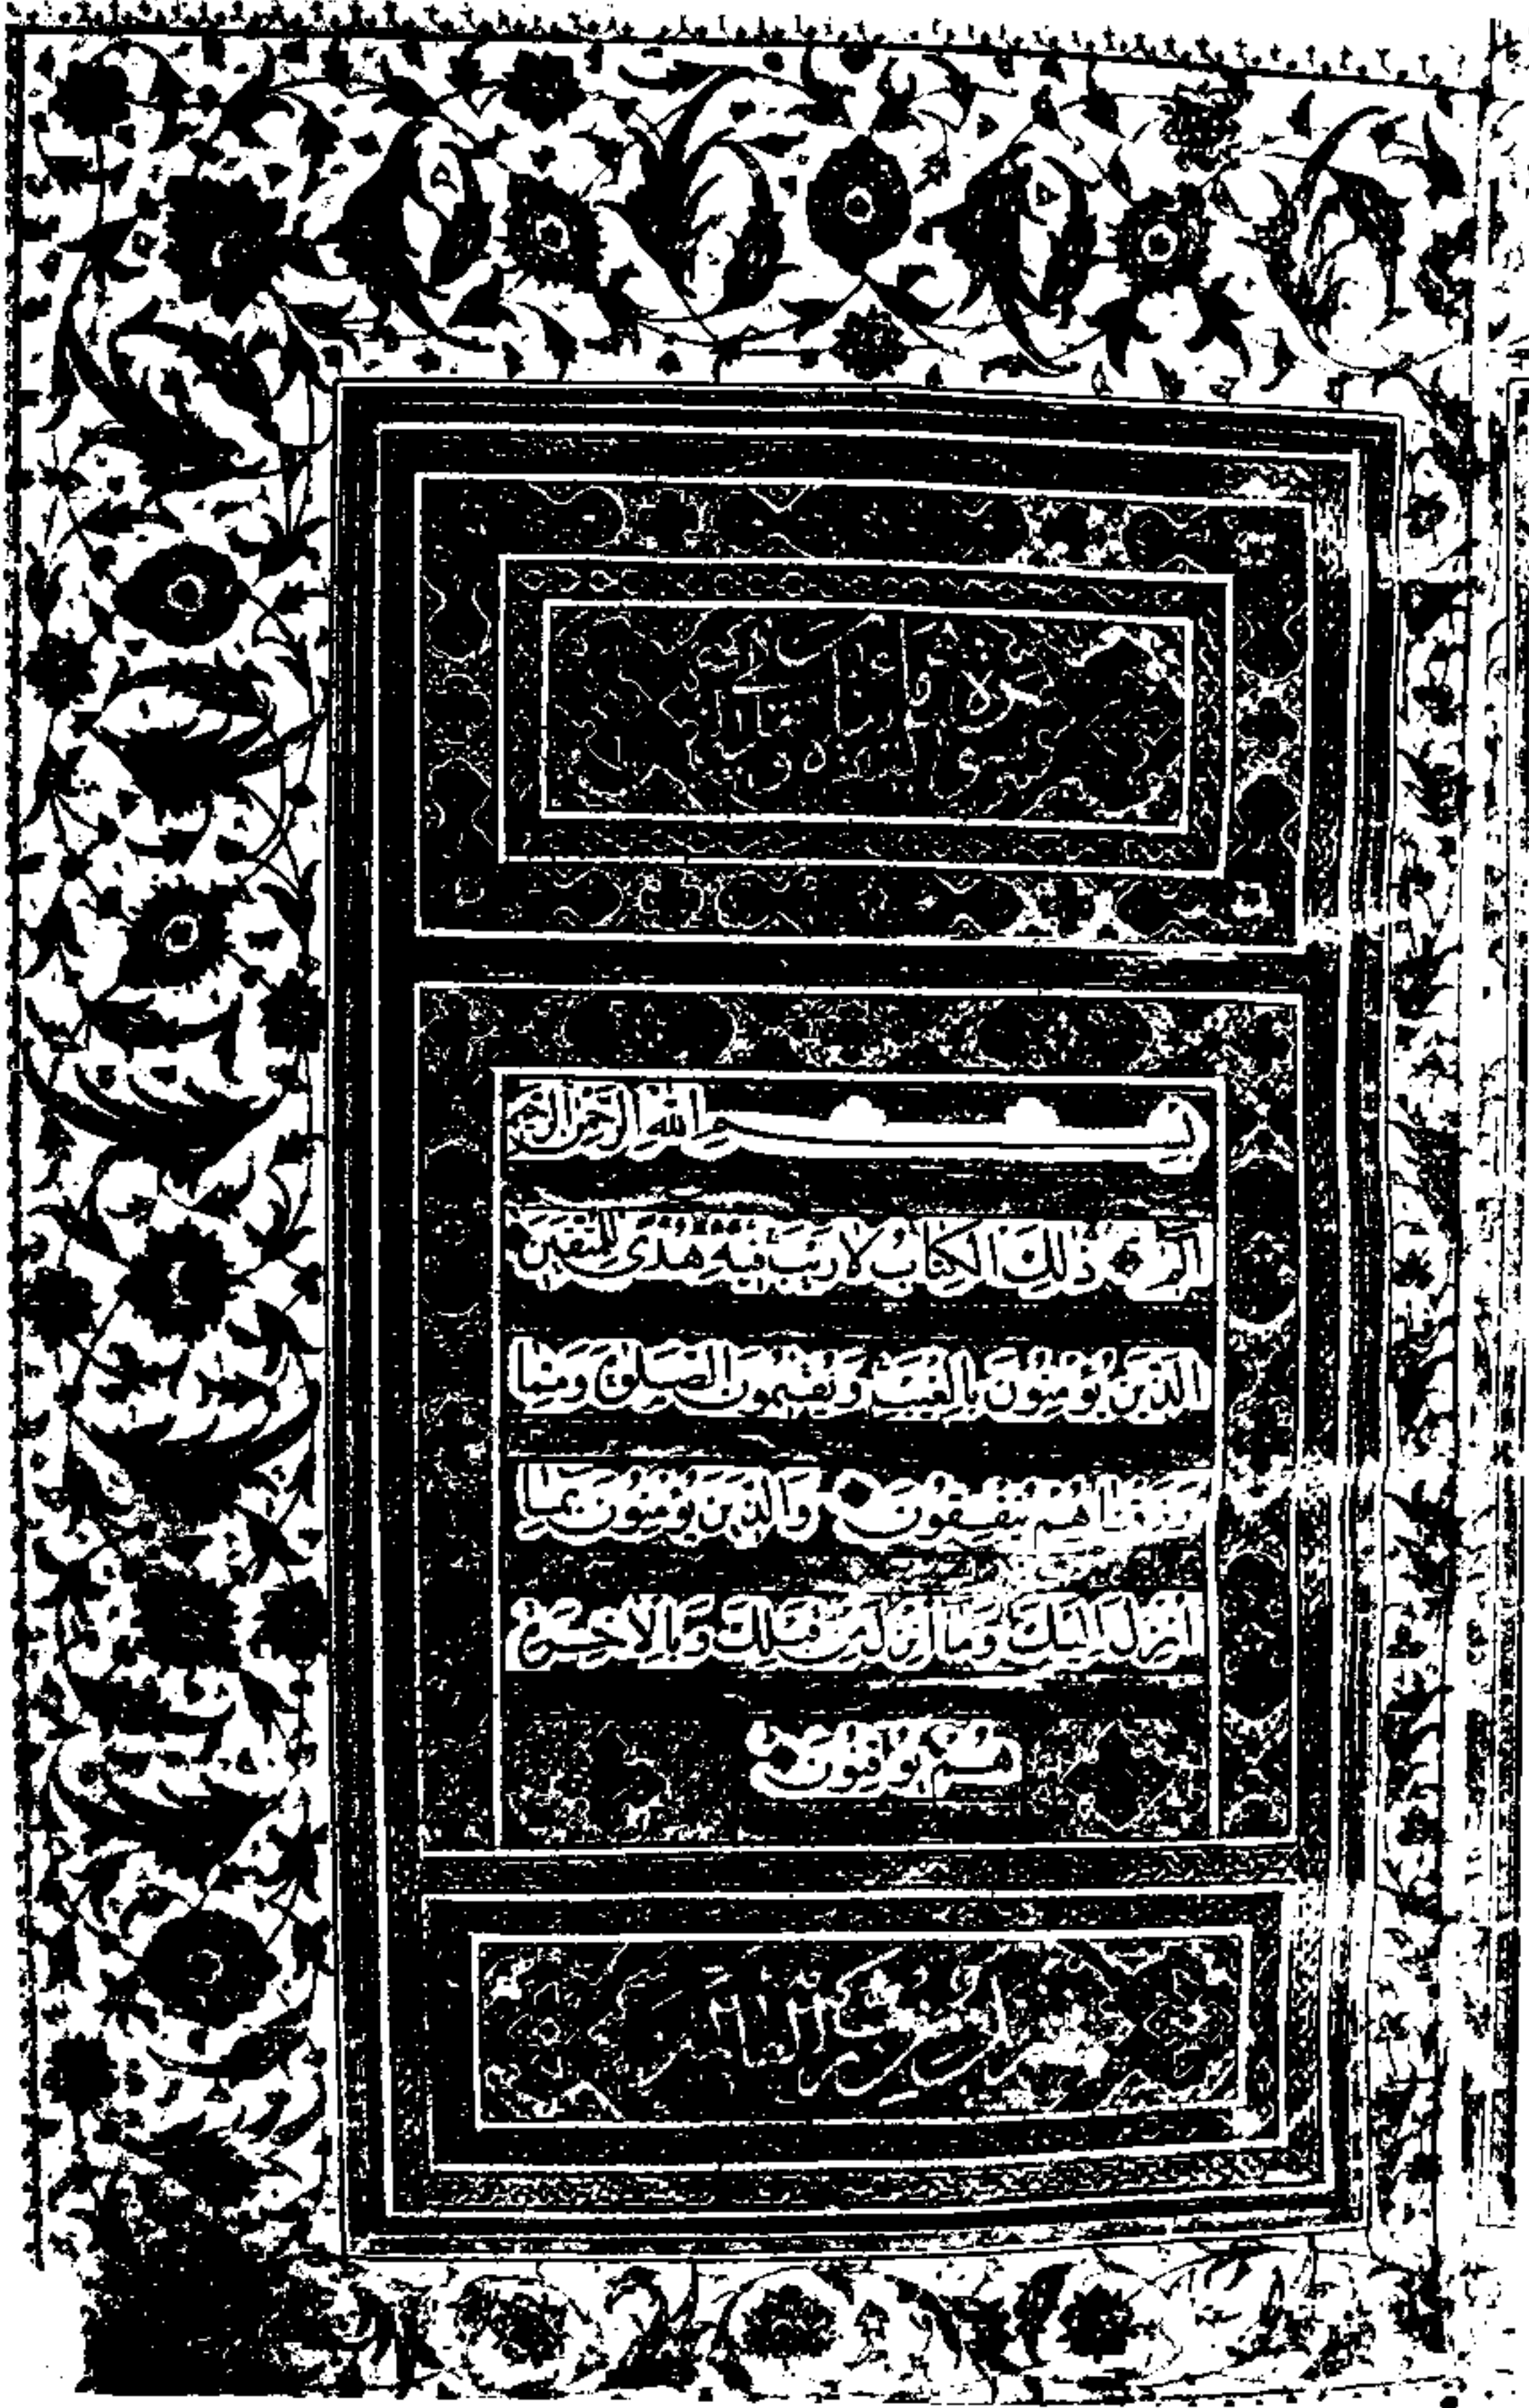 بِسْمِ اللهِ الرَّحْمٰنِ الرَّحِيمِ
الٓمٓ ذٰلِكَ الْكِتَابُ لَا رَيْبَ فِيهِ هُدًى لِلْمُتَّقِينَ
الَّذِينَ يُؤْمِنُونَ بِالْغَيْبِ وَيُقِيمُونَ الصَّلٰوةَ وَمِمَّا
رَزَقْنَاهُمْ يُنْفِقُونَ وَالَّذِينَ يُؤْمِنُونَ بِمَا
اُنْزِلَ اِلَيْكَ وَمَا اُنْزِلَ مِنْ قَبْلِكَ وَبِالْاٰخِرَةِ
هُمْ يُوقِنُونَ